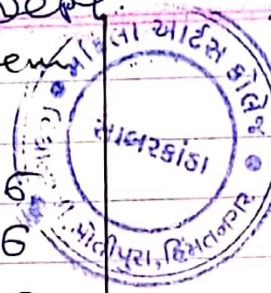 Dept.
મહિલા આર્ટસ કોલેજ
સાબરકાંઠા
મોતીપુરા, હિંમતનગર
6
6